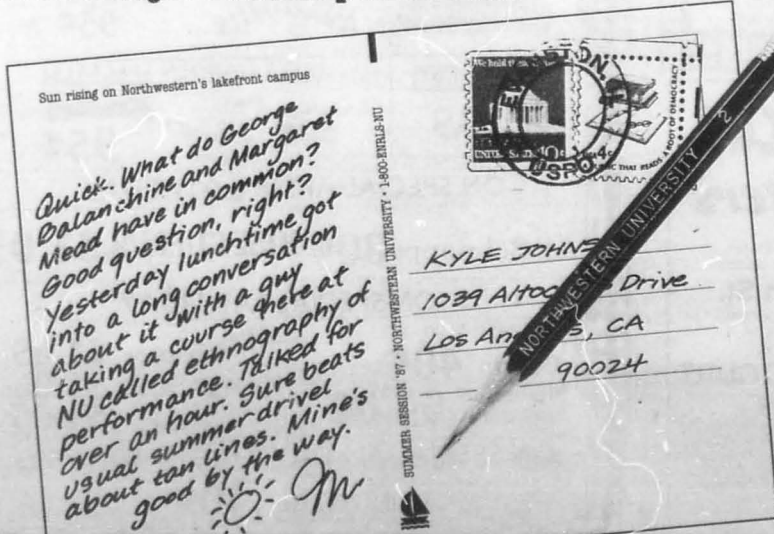 Sun rising on Northwestern's lakefront campus
Quick. What do George
Balanchine and Margaret
Mead have in common?
Good question, right?
Yesterday lunchtime got
into a long conversation
about it with a guy
taking a course here at
NU called ethnography of
performance. Talked for
over an hour. Sure beats
usual summer drivel
about tan lines. Mine's
good by the way.
M
SUMMER SESSION '87 • NORTHWESTERN UNIVERSITY • 1-800-ENRLS-NU
We hold
10c
EVANSTON,
USPO
4c
THAT READS A ROOT OF DEMOCRACY
KYLE JOHNS
1039 Drive
Los CA
90024
NORTHWESTERN UNIVERSITY 2